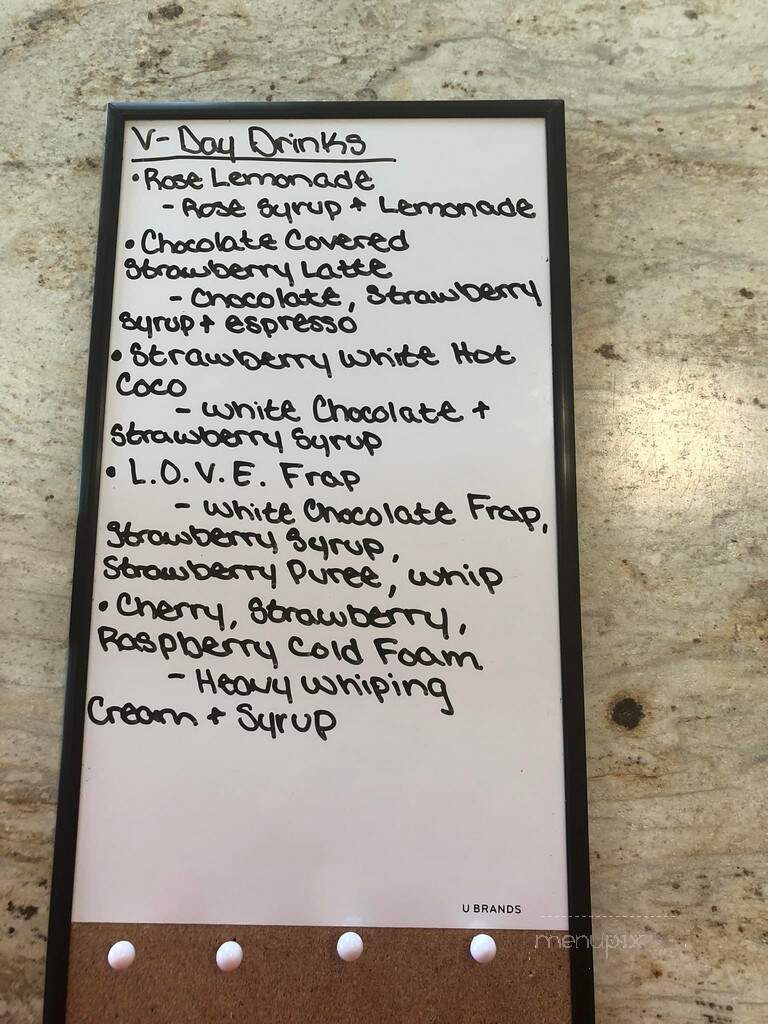 V-Day Drinks
• Rose Lemonade
- Rose Syrup + Lemonade
• Chocolate Covered
Strawberry Latte
- Chocolate, Strawberry
Syrup + espresso
• Strawberry White Hot
Coco
- White Chocolate +
Strawberry Syrup
• L.O.V.E. Frap
- White Chocolate Frap,
Strawberry Syrup,
Strawberry Puree, whip
• Cherry, Strawberry,
Raspberry Cold Foam
- Heavy Whiping
Cream + Syrup
U BRANDS
menupix